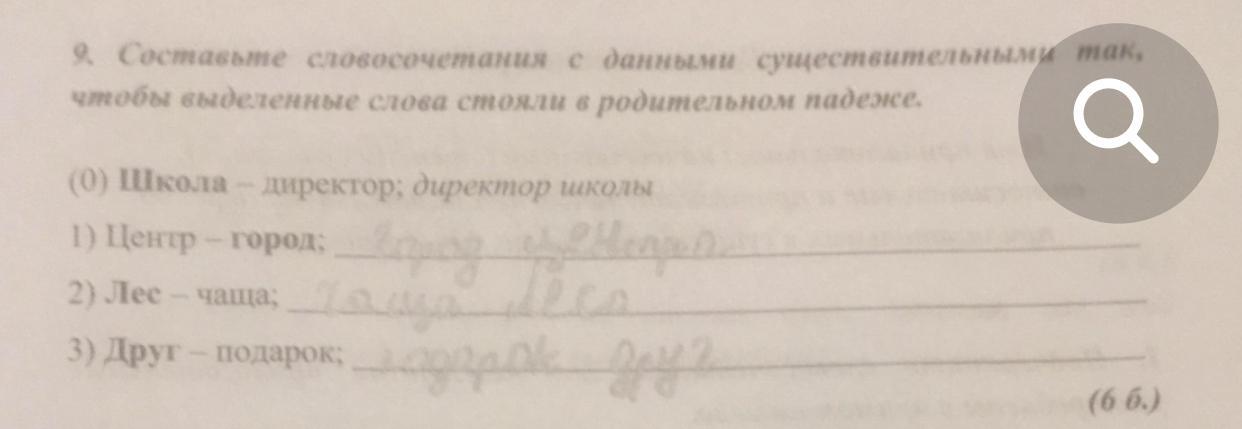 9. Составьте словосочетания с данными существительными так,
чтобы выделенные слова стояли в родительном падеже.
(0) Школа – директор; директор школы
1) Центр – город; город центра
2) Лес – чаща; чаща леса
3) Друг – подарок; друг
(6 б.)